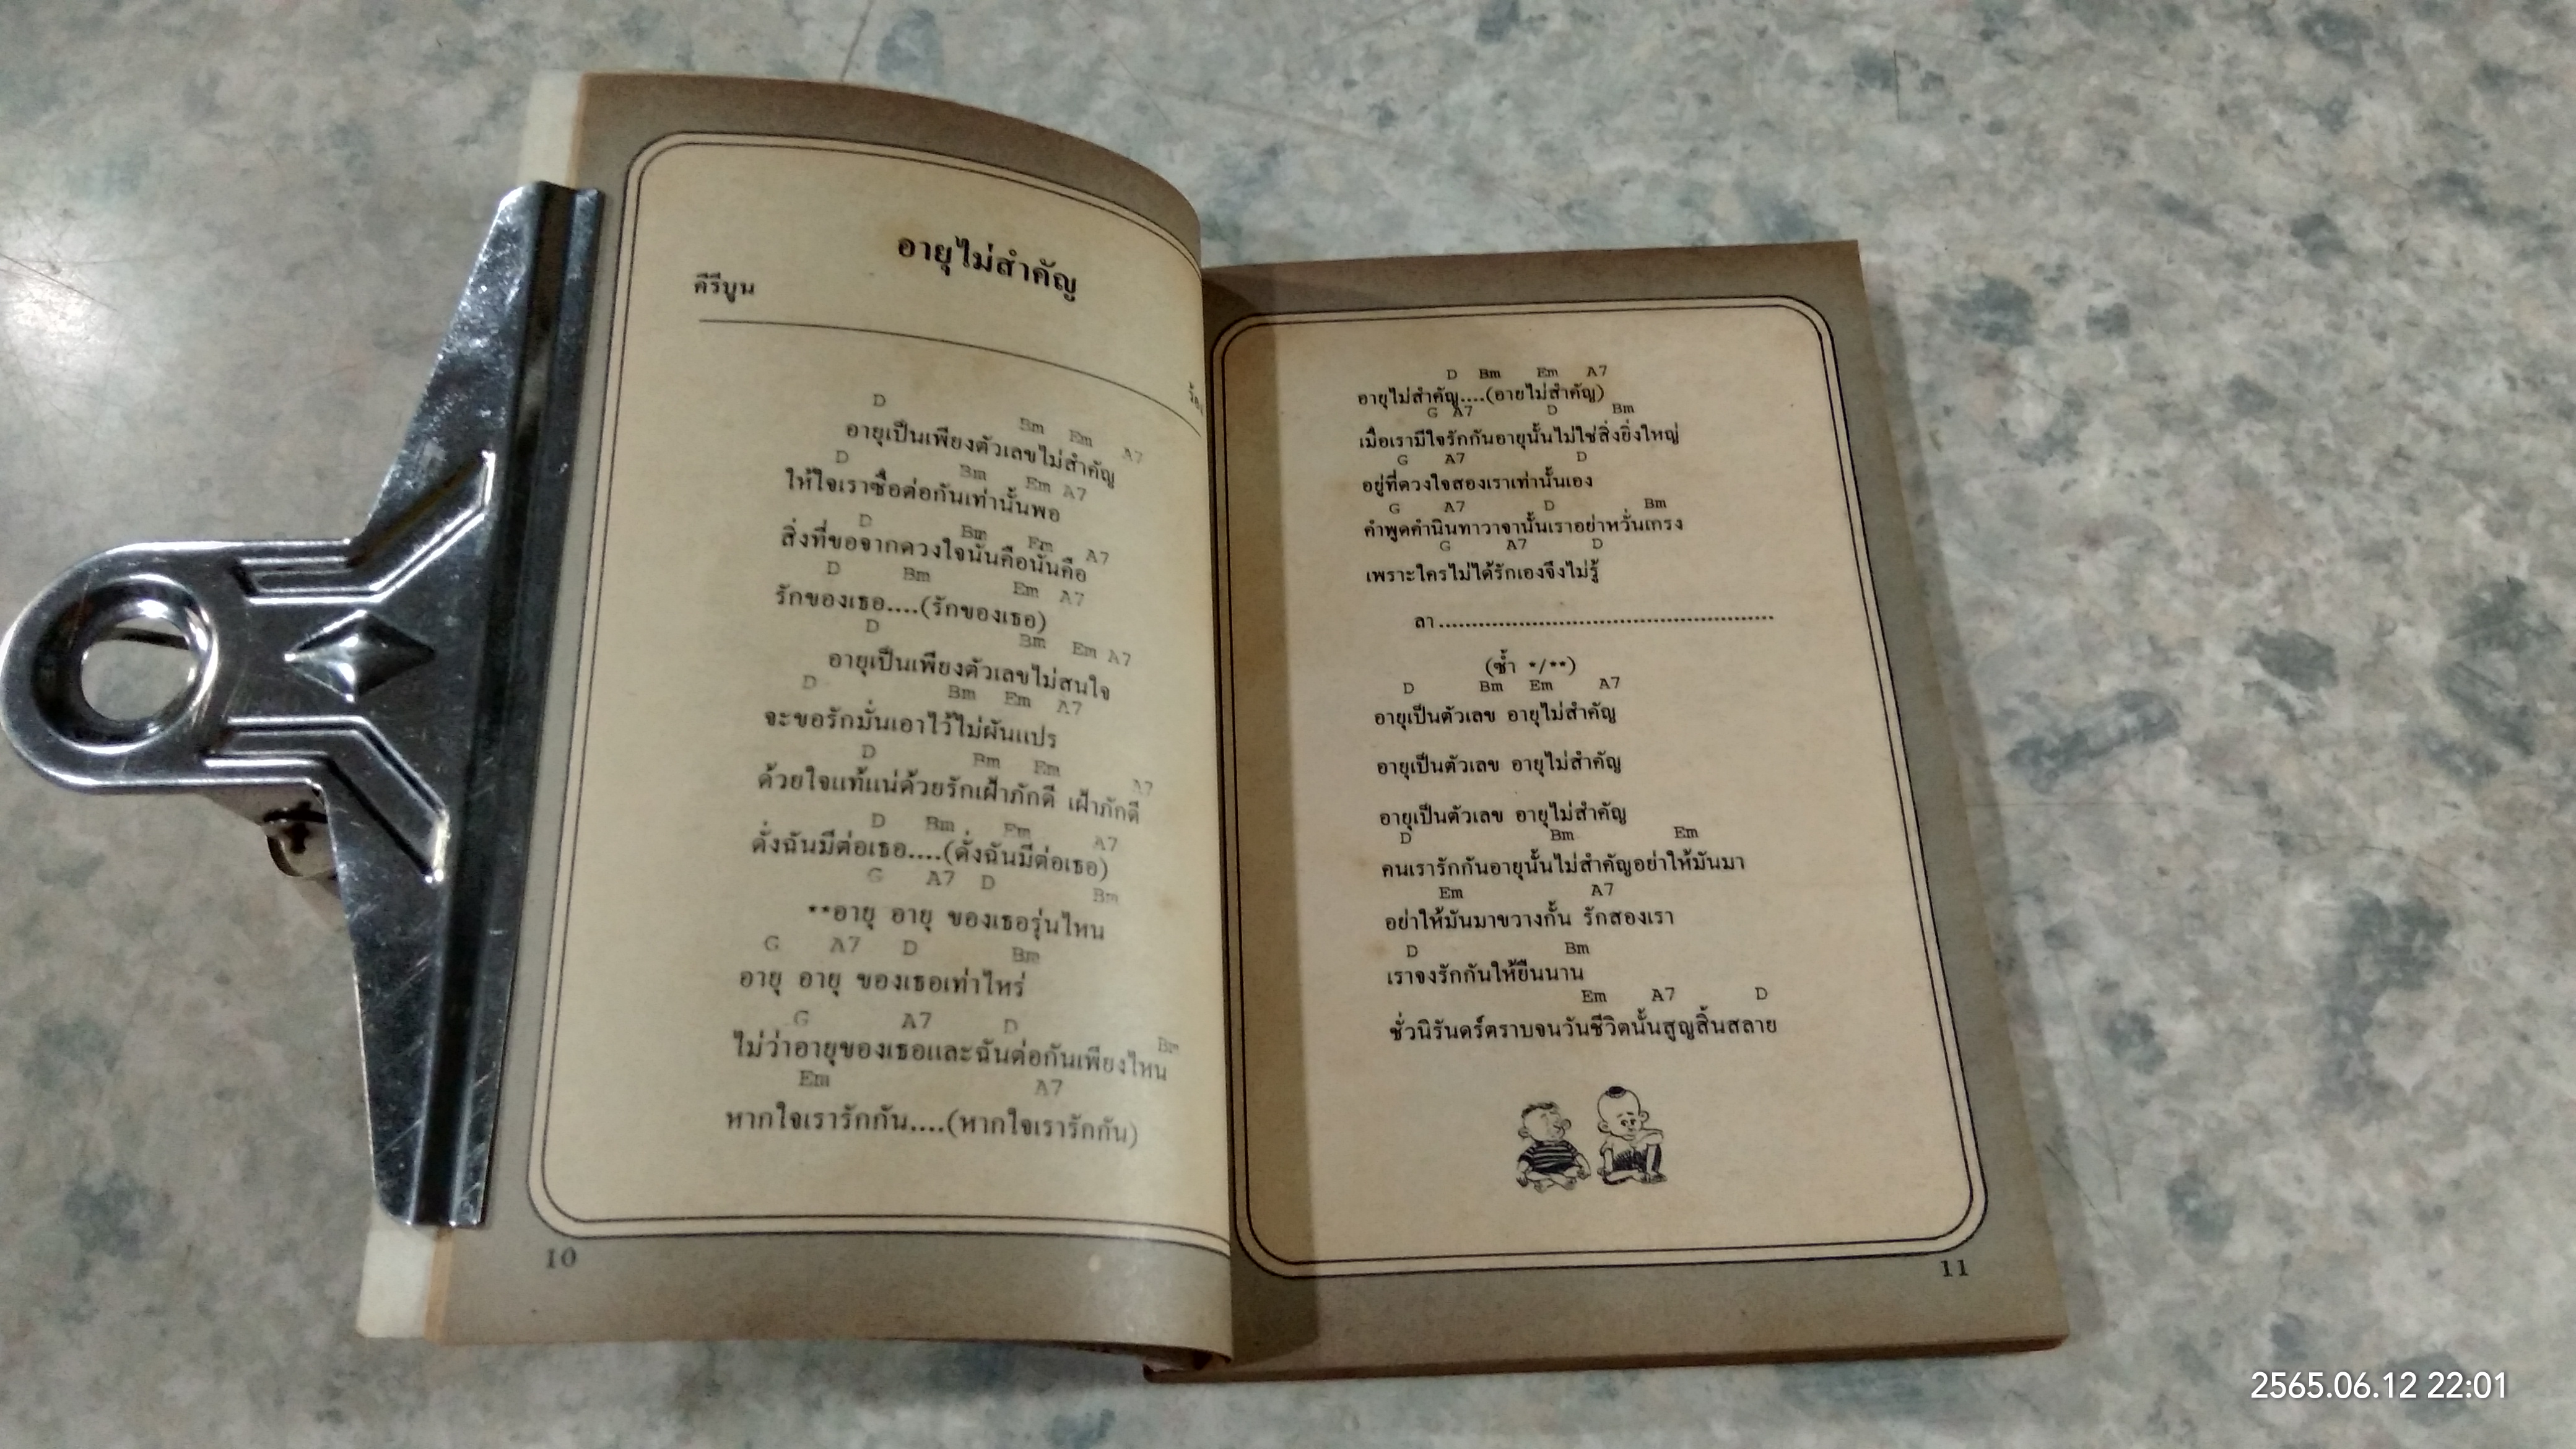 อายุไม่สำคัญ
คีรีบูน
D Bm Em A7
อายุเป็นเพียงตัวเลขไม่สำคัญ
D Bm Em A7
ให้ใจเราซื่อต่อกันเท่านั้นพอ
D Bm Em A7
สิ่งที่ขอจากดวงใจนั่นคือนั่นคือ
D Bm Em A7
รักของเธอ....(รักของเธอ)
D Bm Em A7
อายุเป็นเพียงตัวเลขไม่สนใจ
D Bm Em A7
จะขอรักมั่นเอาไว้ไม่ผันแปร
D Bm Em A7
ด้วยใจแท้แน่ด้วยรักเฝ้าภักดี เฝ้าภักดี
D Bm Em A7
ดั่งฉันมีต่อเธอ....(ดั่งฉันมีต่อเธอ)
G A7 D Bm
**อายุ อายุ ของเธอรุ่นไหน
G A7 D Bm
อายุ อายุ ของเธอเท่าไหร่
G A7 D Bm
ไม่ว่าอายุของเธอและฉันต่อกันเพียงไหน
Em A7
หากใจเรารักกัน....(หากใจเรารักกัน)
10
D Bm Em A7
อายุไม่สำคัญ....(อายุไม่สำคัญ)
G A7 D Bm
เมื่อเรามีใจรักกันอายุนั้นไม่ใช่สิ่งยิ่งใหญ่
G A7 D
อยู่ที่ดวงใจสองเราเท่านั้นเอง
G A7 D Bm
คำพูดคำนินทาวาจานั้นเราอย่าหวั่นเกรง
G A7 D
เพราะใครไม่ได้รักเองจึงไม่รู้
ลา..................................................
(ซ้ำ */**)
D Bm Em A7
อายุเป็นตัวเลข อายุไม่สำคัญ
อายุเป็นตัวเลข อายุไม่สำคัญ
อายุเป็นตัวเลข อายุไม่สำคัญ
D Bm Em
คนเรารักกันอายุนั้นไม่สำคัญอย่าให้มันมา
Em A7
อย่าให้มันมาขวางกั้น รักสองเรา
D Bm
เราจงรักกันให้ยืนนาน
Em A7 D
ชั่วนิรันดร์ตราบจนวันชีวิตนั้นสูญสิ้นสลาย
11
2565.06.12 22:01